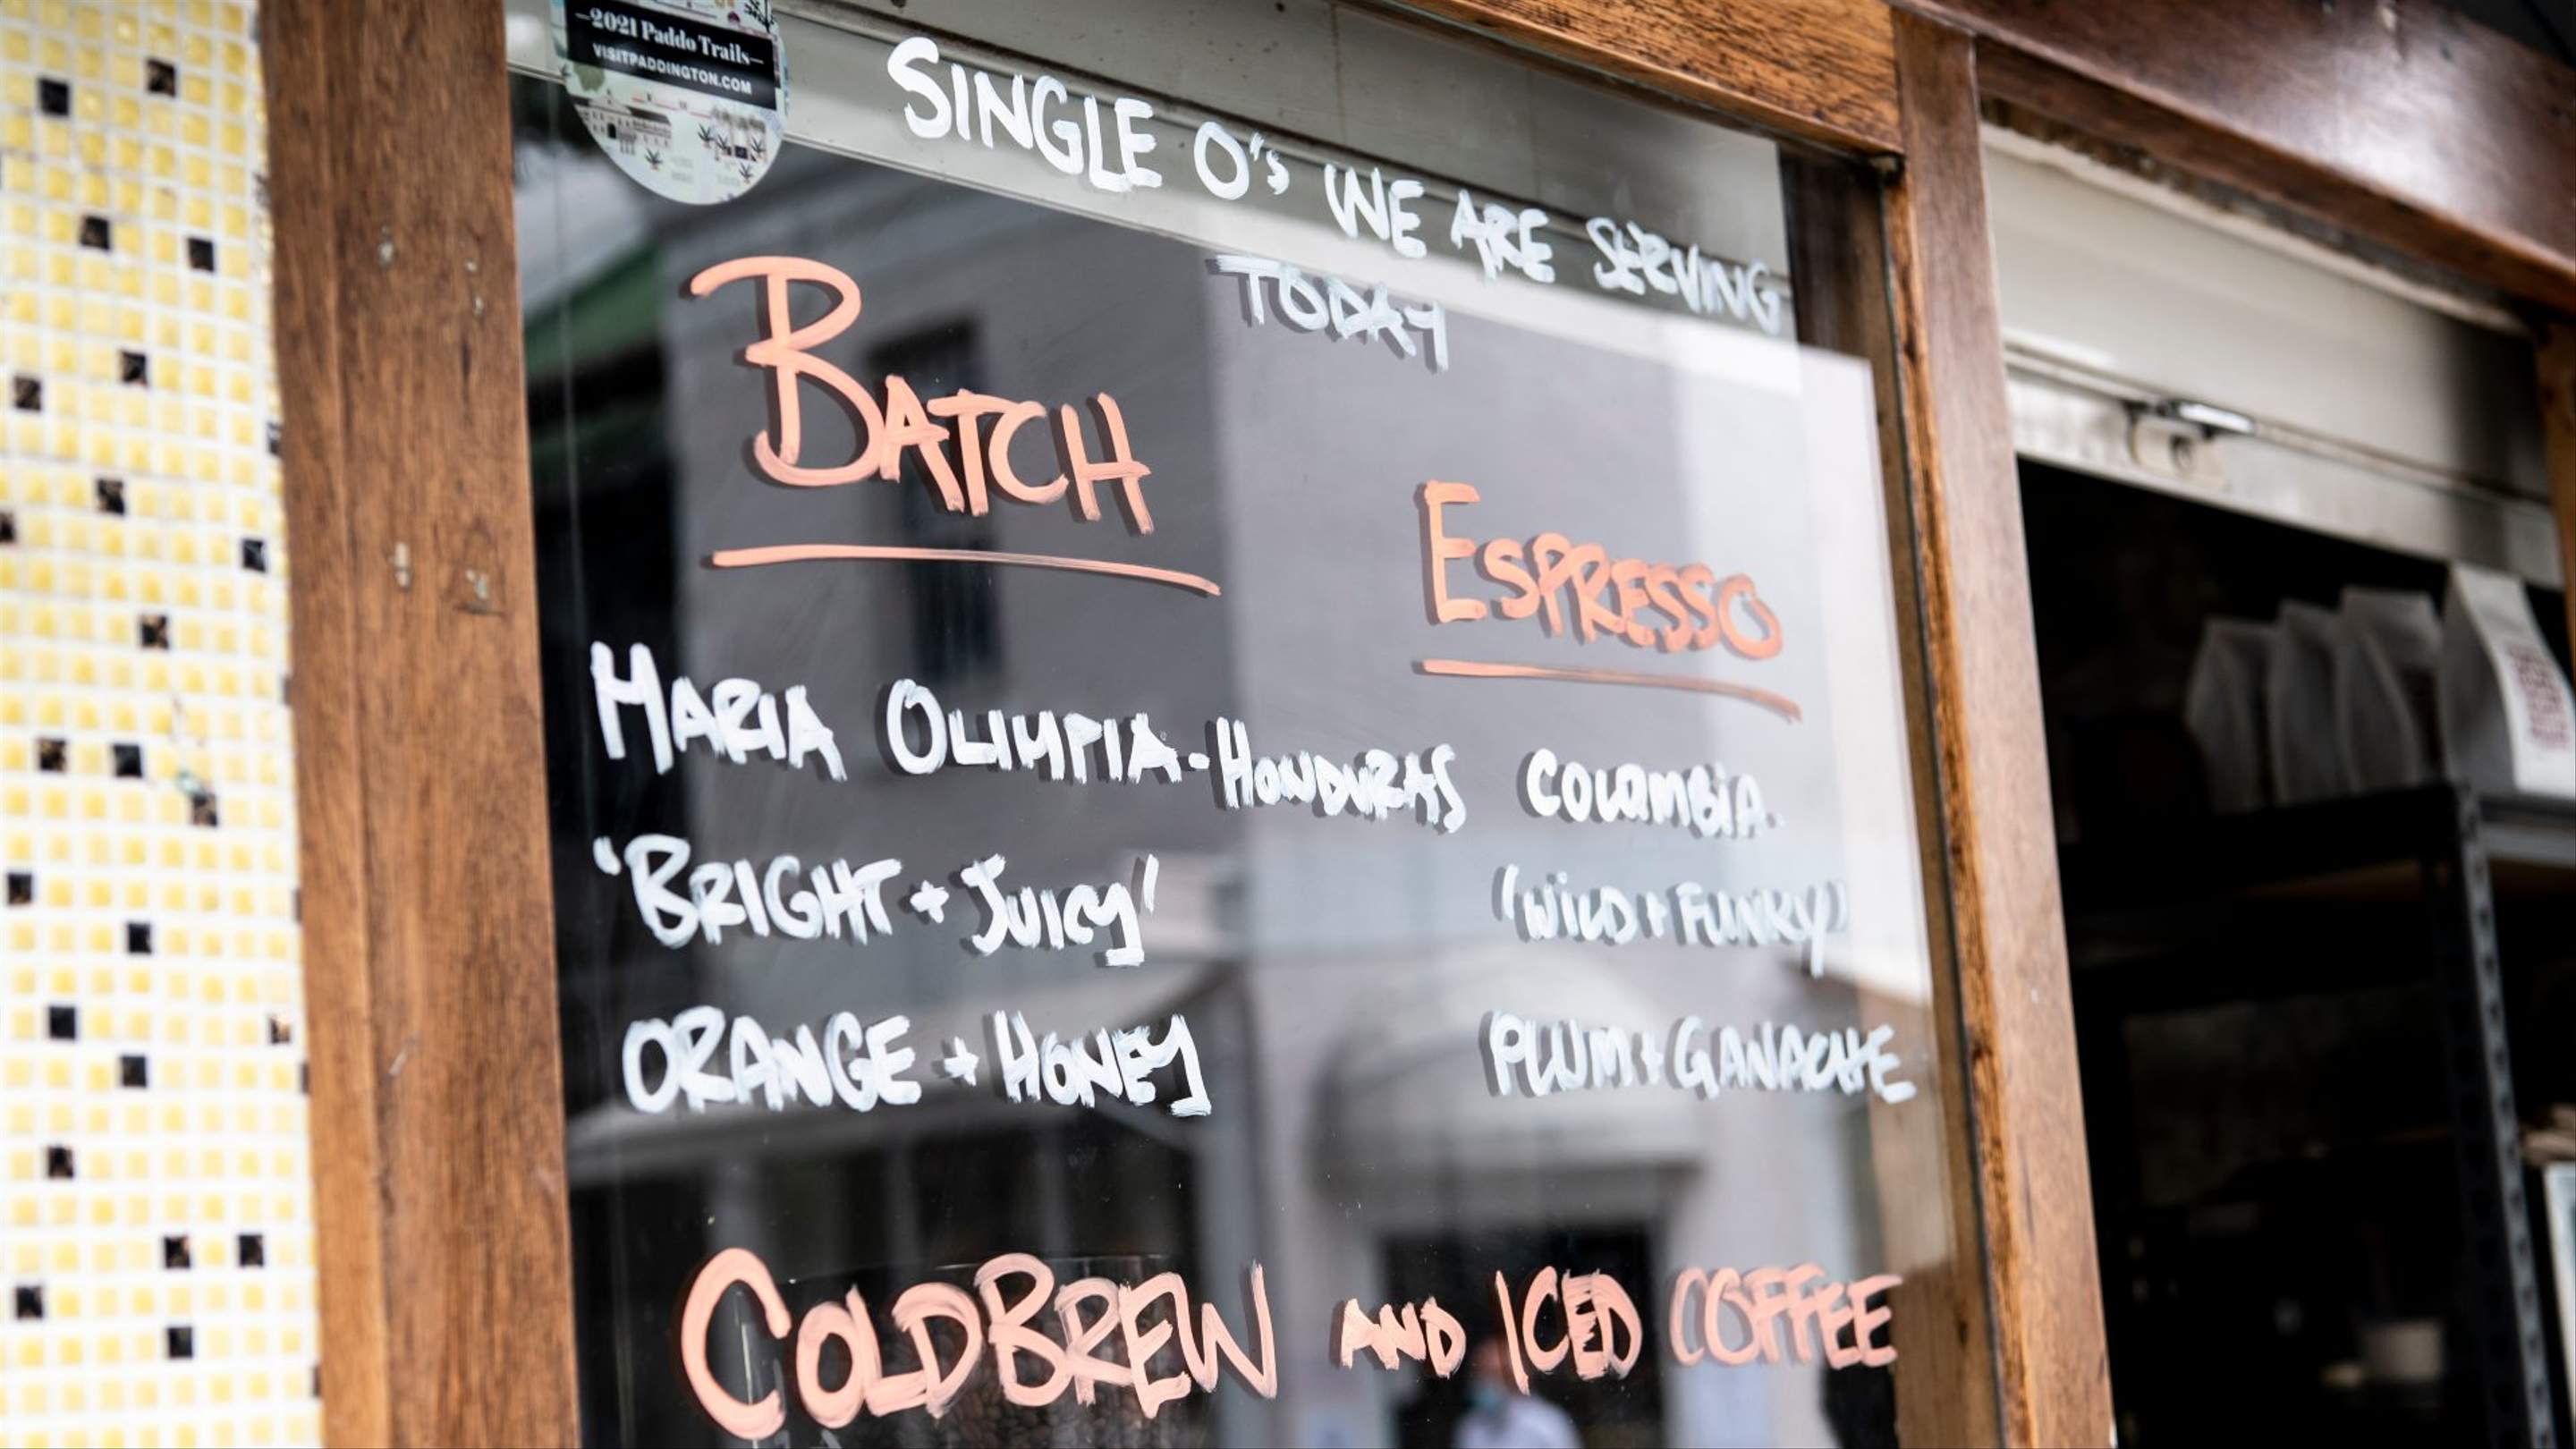 —2021 Paddo Trails—
VISITPADDINGTON.COM
SINGLE O's WE ARE SERVING
TODAY
BATCH
MARIA OLIMPIA-HONDURAS
'BRIGHT + JUICY'
ORANGE + HONEY
ESPRESSO
COLOMBIA.
(WILD + FUNKY)
PLUM + GANACHE
COLDBREW AND ICED COFFEE